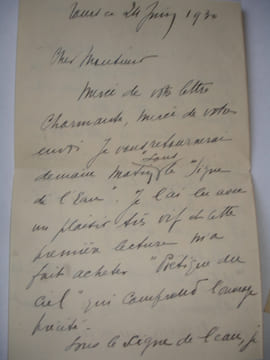 ce 24 Juin 1930
Cher Monsieur
Merci de votre lettre
Charmante, merci de votre
envoi. Je vous retournerai
Sous
demain le "Signe
de l'Eau". Je l'ai lu avec
un plaisir très vif et cette
première lecture m'a
fait acheter "Poétique du
Ciel" qui comprend l'ouvrage
précité.
Sous le Signe de l'eau, je